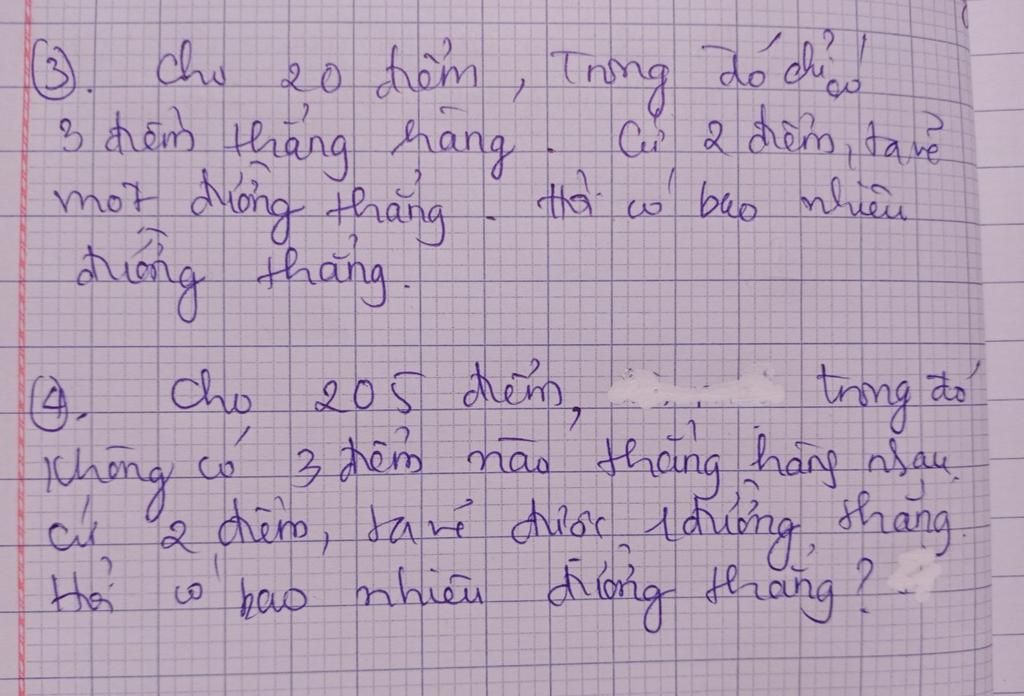 ③. Cho 20 điểm, Trong đó chỉ có
3 điểm thẳng hàng. Cứ 2 điểm, ta vẽ
một đường thẳng. Hỏi có bao nhiêu
đường thẳng.
④. Cho 205 điểm, trong đó
không có 3 điểm nào thẳng hàng nhau.
cứ 2 điểm, ta vẽ được 1 đường thẳng.
Hỏi có bao nhiêu đường thẳng?